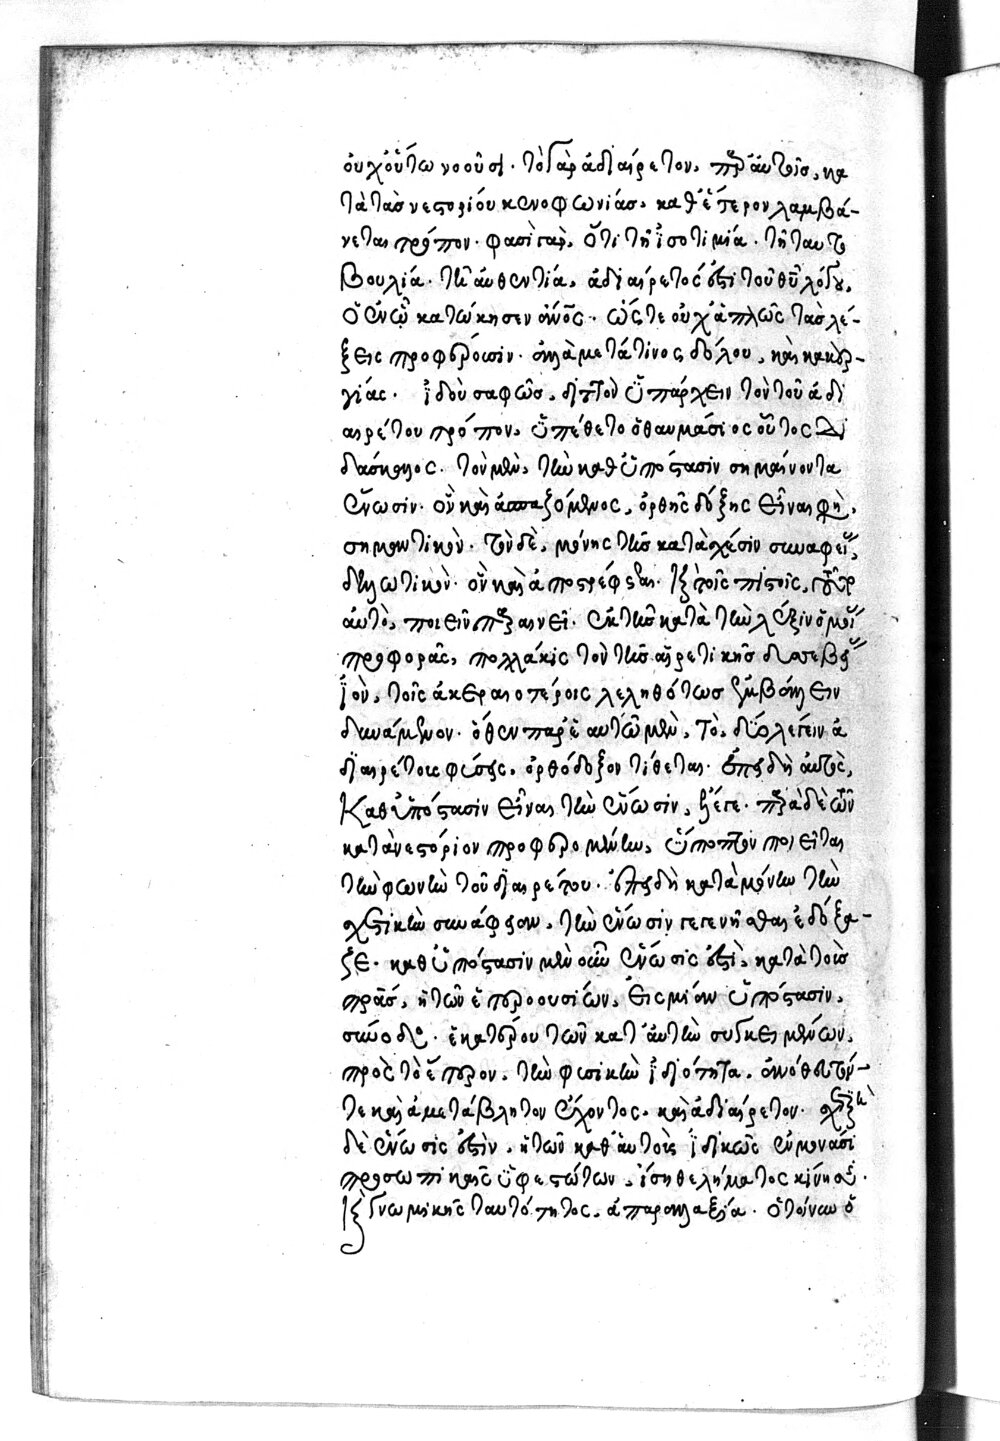 οὐχ οὕτω νοοῦσι· τὸ γὰρ ἀδιαίρετον, παρ' αὐτοῖς, κα
τὰ τὰς νεστορίου κενοφωνίας, καθ' ἕτερον λαμβά-
νεται τρόπον· φασὶ γὰρ, ὅτι τῆ ἰσοτιμία· τῆ ταυτο
βουλία· τῆ αὐθεντία, ἀδιαίρετός ἐστι τοῦ θῦ λόγου,
ὁ ἐν ὧ κατώκησεν ἄνος· ὥστε οὐχ ἁπλῶς τὰς λέ-
ξεις προφέρουσιν· ἀλλὰ μετά τινος δόλου, καὶ κακουρ-
γίας· ἰδοὺ σαφῶς, διττὸν ὑπάρχειν τὸν τοῦ ἀδι
αιρέτου τρόπον, ὑπέθετο ὁ θαυμάσιος οὗτος δι
δάσκαλος· τὸν μὲν, τὴν καθ' ὑπόστασιν σημαίνοντα
ἕνωσιν· ὃν καὶ ἀσπαζόμενος, ὀρθῆς δόξης εἶναι φησὶ,
σημαντικόν· τὸν δὲ, μόνης τῆς κατὰ σχέσιν συναφείας,
δηλωτικόν· ὃν καὶ ἀποστρέφεται· καὶ τοῖς πιστοῖς,
αὐτὸ, ποιεῖν παραινεῖ· ἐκ τῆς κατὰ τὴν λέξιν ὁμοίας
προφορᾶς, πολλάκις τὸν τῆς αἱρετικῆς δυσσεβείας
ἰὸν, τοῖς ἀκεραιοτέροις λεληθότως ἐμβάλλειν
δυνάμενον· ὅθεν παρ' ἑαυτῶ μὲν, τὸ, δύο λέγειν ἀ
διαιρέτους φύσεις, ὀρθόδοξον τίθεται· ἐπειδὴ αὐτὸς,
καθ' ὑπόστασιν εἶναι τὴν ἕνωσιν, παρὰ δὲ τῶν
κατὰ νεστόριον προφερομένην, ὕποπτον ποιεῖται
τὴν φωνὴν τοῦ διαιρέτου· ἐπειδὴ κατὰ μόνην τὴν
σχετικὴν συνάφειαν, τὴν ἕνωσιν γεγενῆσθαι ἐδόξα-
ζε· καθ' ὑπόστασιν μὲν οὖν ἕνωσίς ἐστὶ, κατὰ τοὺς
πρας, ἡ τῶν ἑτεροουσίων, εἰς μίαν ὑπόστασιν,
σύνοδος· ἑκατέρου τῶν κατ' αὐτὴν συγκειμένων,
πρὸς τὸ ἕτερον, τὴν φυσικὴν ἰδιότητα, ἀνόθευτόν-
τε καὶ ἀμετάβλητον ἔχοντος, καὶ ἀδιαίρετον· σχετικὴ
δὲ ἕνωσίς ἐστὶν, ἡ τῶν καθ' αὑτοὺς ἰδικῶς ἐν μονάσι
προσωπικαῖς ὑφεστώτων, ἴση θελήματος κίνησις·
καὶ γνωμικῆς ταυτότητος, ἀπαραλλαξία· ὁ τοίνυν ὁ